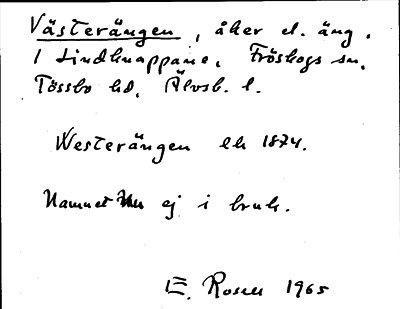 Västerängen, åker el. äng.
1 Lindknappane. Fröskogs sn.
Tössbo hd. Älvsb. l.
Westerängen lk 1874.
Namnet ej i bruk.
E. Rosell 1965